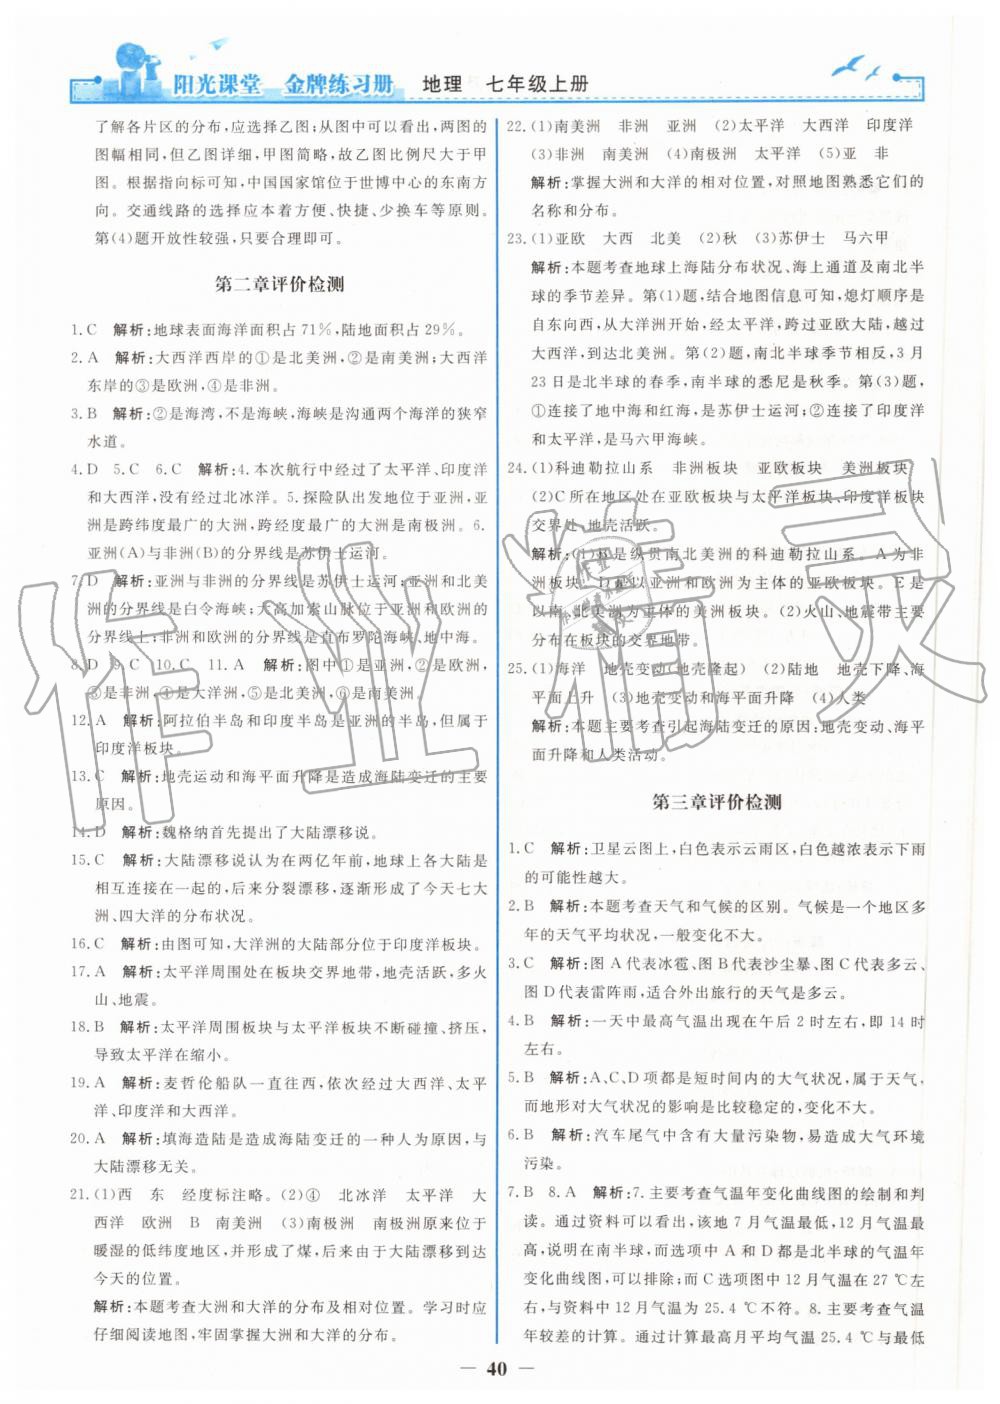 阳光课堂 金牌练习册 地理 七年级上册
了解各片区的分布,应选择乙图;从图中可以看出,两图的
图幅相同,但乙图详细,甲图简略,故乙图比例尺大于甲
图。根据指向标可知,中国国家馆位于世博中心的东南方
向。交通线路的选择应本着方便、快捷、少换车等原则。
第(4)题开放性较强,只要合理即可。
第二章评价检测
1.C 解析:地球表面海洋面积占71%,陆地面积占29%。
2.A 解析:大西洋西岸的①是北美洲,②是南美洲;大西洋
东岸的③是欧洲,④是非洲。
3.B 解析:②是海湾,不是海峡,海峡是沟通两个海洋的狭窄
水道。
4.D 5.C 6.C 解析:4.本次航行中经过了太平洋、印度洋
和大西洋,没有经过北冰洋。5.探险队出发地位于亚洲,亚
洲是跨纬度最广的大洲,跨经度最广的大洲是南极洲。6.
亚洲(A)与非洲(B)的分界线是苏伊士运河。
7.D 解析:亚洲与非洲的分界线是苏伊士运河;亚洲和北美
洲的分界线是白令海峡;大高加索山脉位于亚洲和欧洲的
分界线上;非洲和欧洲的分界线是直布罗陀海峡、地中海。
8.D 9.C 10.C 11.A 解析:图中①是亚洲,②是欧洲,
③是非洲,④是大洋洲,⑤是北美洲,⑥是南美洲。
12.A 解析:阿拉伯半岛和印度半岛是亚洲的半岛,但属于
印度洋板块。
13.C 解析:地壳运动和海平面升降是造成海陆变迁的主要
原因。
14.D 解析:魏格纳首先提出了大陆漂移说。
15.C 解析:大陆漂移说认为在两亿年前,地球上各大陆是
相互连接在一起的,后来分裂漂移,逐渐形成了今天七大
洲、四大洋的分布状况。
16.C 解析:由图可知,大洋洲的大陆部分位于印度洋板块。
17.A 解析:太平洋周围处在板块交界地带,地壳活跃,多火
山、地震。
18.B 解析:太平洋周围板块与太平洋板块不断碰撞、挤压,
导致太平洋在缩小。
19.A 解析:麦哲伦船队一直往西,依次经过大西洋、太平
洋、印度洋和大西洋。
20.A 解析:填海造陆是造成海陆变迁的一种人为原因,与
大陆漂移无关。
21.(1)西 东 经度标注略。(2)④ 北冰洋 太平洋 大
西洋 欧洲 B 南美洲 (3)南极洲 南极洲原来位于
暖湿的低纬度地区,并形成了煤,后来由于大陆漂移到达
今天的位置。
解析:本题考查大洲和大洋的分布及相对位置。学习时应
仔细阅读地图,牢固掌握大洲和大洋的分布。
22.(1)南美洲 非洲 亚洲 (2)太平洋 大西洋 印度洋
(3)非洲 南美洲 (4)南极洲 太平洋 (5)亚 非
解析:掌握大洲和大洋的相对位置,对照地图熟悉它们的
名称和分布。
23.(1)亚欧 大西 北美 (2)秋 (3)苏伊士 马六甲
解析:本题考查地球上海陆分布状况、海上通道及南北半
球的季节差异。第(1)题,结合地图信息可知,熄灯顺序是
自东向西,从大洋洲开始,经太平洋,跨过亚欧大陆,越过
大西洋,到达北美洲。第(2)题,南北半球季节相反,3月
23日是北半球的春季,南半球的悉尼是秋季。第(3)题,
①连接了地中海和红海,是苏伊士运河;②连接了印度洋
和太平洋,是马六甲海峡。
24.(1)科迪勒拉山系 非洲板块 亚欧板块 美洲板块
(2)C所在地区处在亚欧板块与太平洋板块、印度洋板块
交界处,地壳活跃。
解析:(1)B是纵贯南北美洲的科迪勒拉山系。A为非
洲板块,D是以亚洲和欧洲为主体的亚欧板块。E是
以南、北美洲为主体的美洲板块。(2)火山、地震带主要
分布在板块的交界地带。
25.(1)海洋 地壳变动(地壳隆起) (2)陆地 地壳下降、海
平面上升 (3)地壳变动和海平面升降 (4)人类
解析:本题主要考查引起海陆变迁的原因:地壳变动、海平
面升降和人类活动。
第三章评价检测
1.C 解析:卫星云图上,白色表示云雨区,白色越浓表示下雨
的可能性越大。
2.B 解析:本题考查天气和气候的区别。气候是一个地区多
年的天气平均状况,一般变化不大。
3.C 解析:图A代表冰雹,图B代表沙尘暴,图C代表多云,
图D代表雷阵雨,适合外出旅行的天气是多云。
4.B 解析:一天中最高气温出现在午后2时左右,即14时
左右。
5.B 解析:A、C、D项都是短时间内的大气状况,属于天气,
而地形对大气状况的影响是比较稳定的,变化不大。
6.B 解析:汽车尾气中含有大量污染物,易造成大气环境
污染。
7.B 8.A 解析:7.主要考查气温年变化曲线图的绘制和判
读。通过资料可以看出,该地7月气温最低,12月气温最
高,说明在南半球,而选项中A和D都是北半球的气温年
变化曲线图,可以排除;而C选项图中12月气温在27℃左
右,与资料中12月气温为25.4℃不符。8.主要考查气温
年较差的计算。通过计算最高月平均气温25.4℃与最低
— 40 —
作业精灵